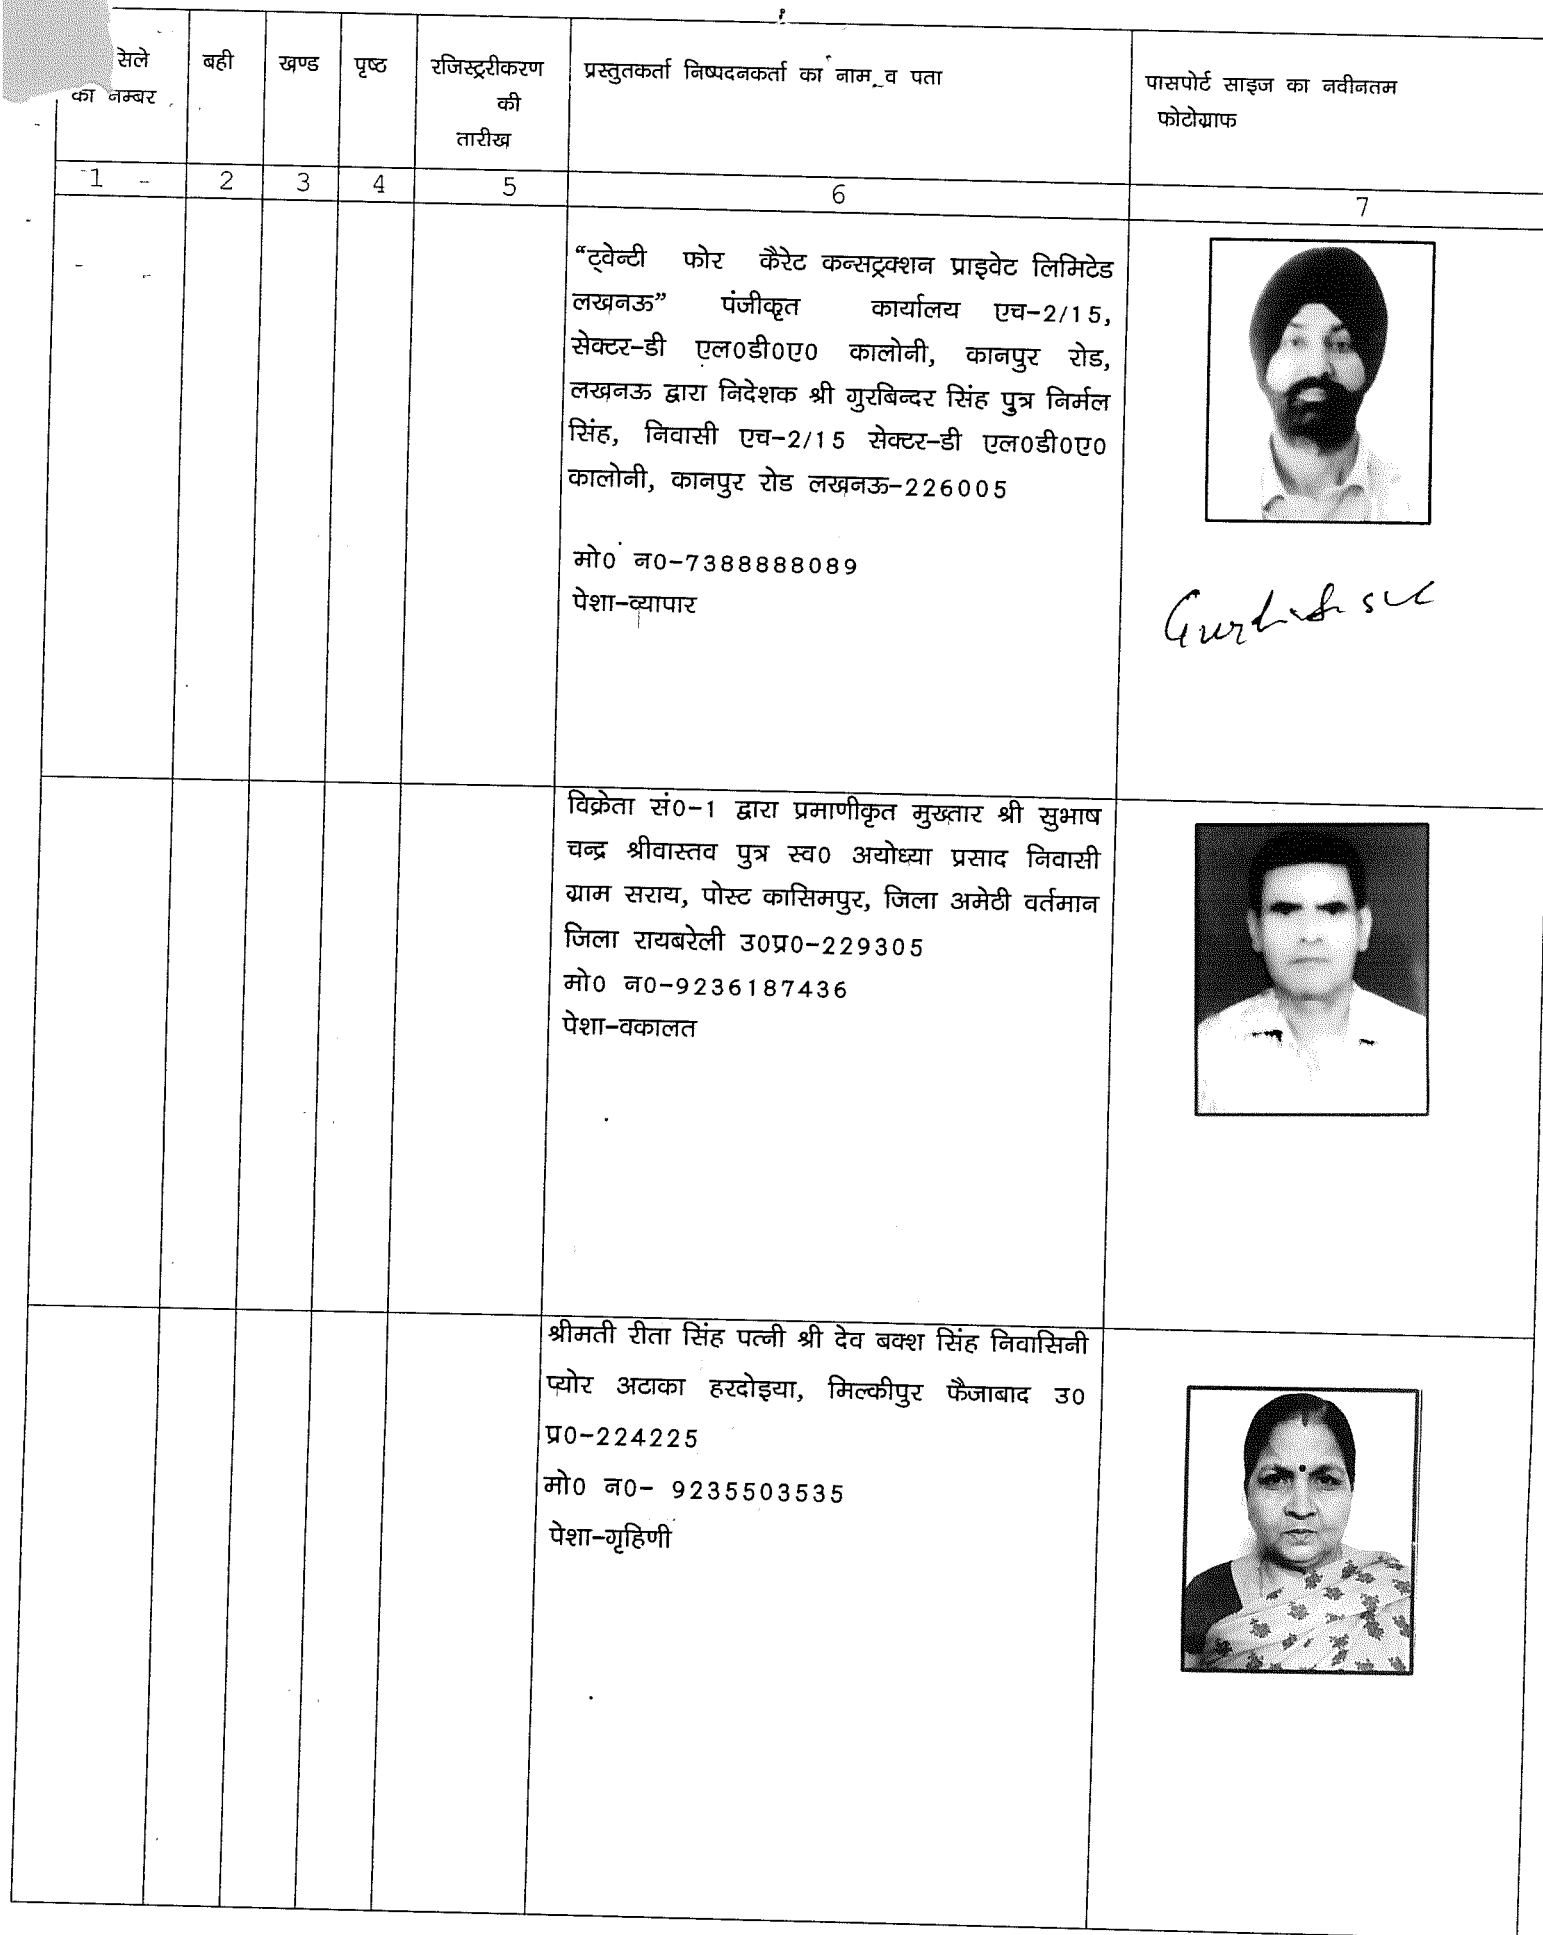 सेले
का नम्बर
बही
खण्ड
पृष्ठ
रजिस्ट्ररीकरण
की
तारीख
प्रस्तुतकर्ता निष्पदनकर्ता का नाम व पता
पासपोर्ट साइज का नवीनतम
फोटोग्राफ
1 2 3 4 5 6 7
“ट्वेन्टी फोर कैरेट कन्सट्रक्शन प्राइवेट लिमिटेड
लखनऊ” पंजीकृत कार्यालय एच-2/15,
सेक्टर-डी एल0डी0ए0 कालोनी, कानपुर रोड,
लखनऊ द्वारा निदेशक श्री गुरबिन्दर सिंह पुत्र निर्मल
सिंह, निवासी एच-2/15 सेक्टर-डी एल0डी0ए0
कालोनी, कानपुर रोड लखनऊ-226005
मो0 न0-7388888089
पेशा-व्यापार
विक्रेता सं0-1 द्वारा प्रमाणीकृत मुख्तार श्री सुभाष
चन्द्र श्रीवास्तव पुत्र स्व0 अयोध्या प्रसाद निवासी
ग्राम सराय, पोस्ट कासिमपुर, जिला अमेठी वर्तमान
जिला रायबरेली उ0प्र0-229305
मो0 न0-9236187436
पेशा-वकालत
श्रीमती रीता सिंह पत्नी श्री देव बक्श सिंह निवासिनी
प्योर अटाका हरदोइया, मिल्कीपुर फैजाबाद उ0
प्र0-224225
मो0 न0- 9235503535
पेशा-गृहिणी